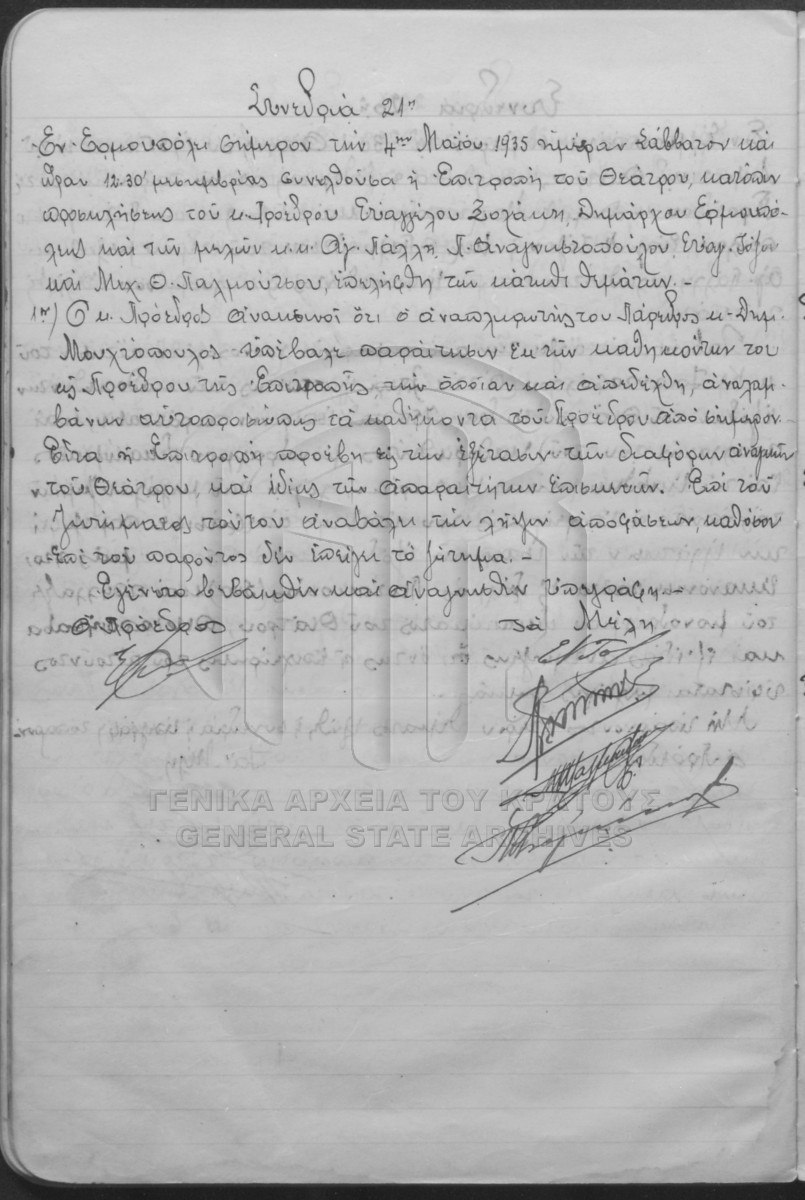 Συνεδρία 21η
Εν Ερμουπόλει σήμερον την 4ην Μαΐου 1935 ημέραν Σάββατον και
ώραν 12.30' μεσημβρίας συνελθούσα ή Επιτροπή του Θεάτρου, κατόπιν
προσκλήσεως του κ. Προέδρου Ευαγγέλου Σολάκη, Δημάρχου Ερμουπό-
λεως και των μελών κ.κ. Αγ. Πάλλη, Π. Αναγνωστοπούλου, Ευαγ.
και Μιχ. Θ. Παλμούτσου, επελήφθη των κάτωθι θεμάτων. -
1ον) Ο κ. Πρόεδρος ανακοινοί ότι ο αναπληρωτής του Πάρεδρος κ. Δημ.
Μουχτόπουλος υπέβαλε παραίτησιν εκ των καθηκόντων του
ως Προέδρου της Επιτροπής, την οποίαν και απεδέχθη, αναλαμ-
βάνων αυτοπροσώπως τα καθήκοντα του Προέδρου από σήμερον.
Είτα ή Επιτροπή προέβη εις την εξέτασιν των διαφόρων αναγκών
του Θεάτρου, και ιδίως των απαραιτήτων επισκευών. Επί του
ζητήματος τούτου αναβάλει την λήψιν αποφάσεων, καθόσον
επί του παρόντος δεν επείγει το ζήτημα. -
Εγένετο εβεβαιώθη και αναγνωσθέν υπεγράφη. -
Ο Πρόεδρος Τα Μέλη
ΓΕΝΙΚΑ ΑΡΧΕΙΑ ΤΟΥ ΚΡΑΤΟΥΣ
GENERAL STATE ARCHIVES